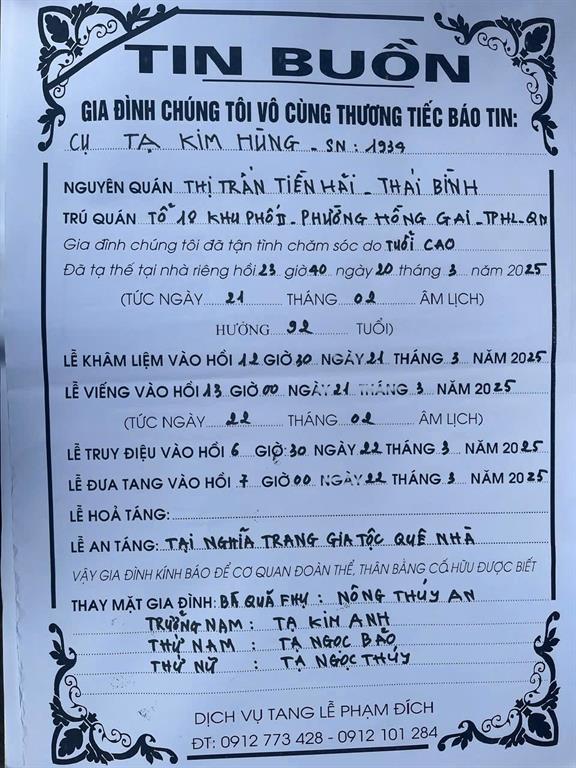 TIN BUỒN
GIA ĐÌNH CHÚNG TÔI VÔ CÙNG THƯƠNG TIẾC BÁO TIN:
CỤ TẠ KIM HÙNG - SN: 1934
NGUYÊN QUÁN THỊ TRẤN TIỀN HẢI - THÁI BÌNH
TRÚ QUÁN TỔ 18 KHU PHỐ II - PHƯỜNG HỒNG GAI - TPHL - QN
Gia đình chúng tôi đã tận tình chăm sóc do TUỔI CAO
Đã tạ thế tại nhà riêng hồi 23 giờ 40 ngày 20 tháng 3 năm 2025
(TỨC NGÀY 21 THÁNG 02 ÂM LỊCH)
HƯỞNG 92 TUỔI)
LỄ KHÂM LIỆM VÀO HỒI 12 GIỜ 30 NGÀY 21 THÁNG 3 NĂM 2025
LỄ VIẾNG VÀO HỒI 13 GIỜ 00 NGÀY 21 THÁNG 3 NĂM 2025
(TỨC NGÀY 22 THÁNG 02 ÂM LỊCH)
LỄ TRUY ĐIỆU VÀO HỒI 6 GIỜ 30 NGÀY 22 THÁNG 3 NĂM 2025
LỄ ĐƯA TANG VÀO HỒI 7 GIỜ 00 NGÀY 22 THÁNG 3 NĂM 2025
LỄ HOẢ TÁNG:
LỄ AN TÁNG: TẠI NGHĨA TRANG GIA TỘC QUÊ NHÀ
VẬY GIA ĐÌNH KÍNH BÁO ĐỂ CƠ QUAN ĐOÀN THỂ, THÂN BẰNG CỐ HỮU ĐƯỢC BIẾT
THAY MẶT GIA ĐÌNH: BÀ QUẢ PHỤ: NÔNG THÚY AN
TRƯỞNG NAM: TẠ KIM ANH
THỨ NAM: TẠ NGỌC BẢO
THỨ NỮ: TẠ NGỌC THÚY
DỊCH VỤ TANG LỄ PHẠM ĐÍCH
ĐT: 0912 773 428 - 0912 101 284